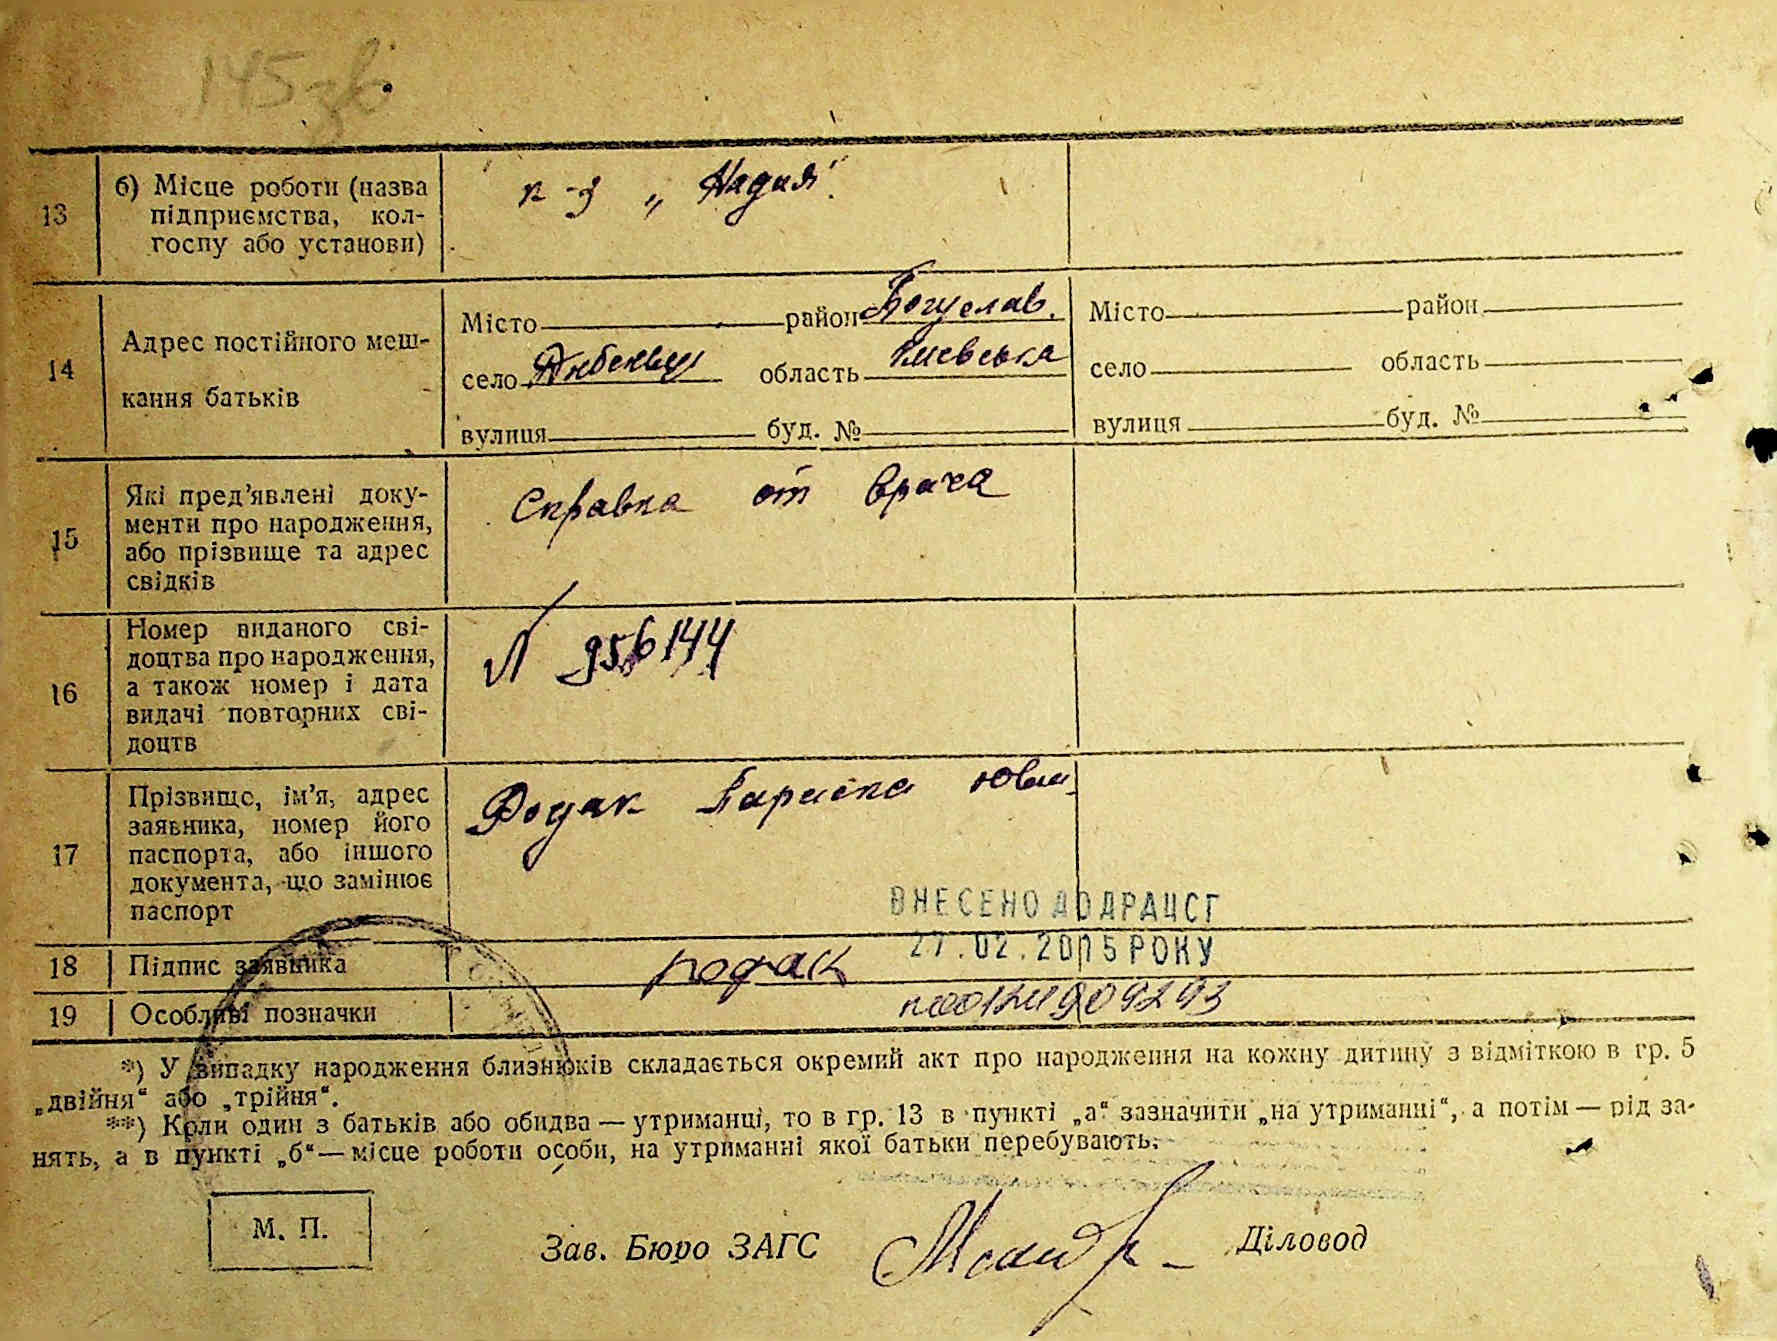 145зв
13
б) Місце роботи (назва
підприємства, кол-
госпу або установи)
к-з „Надия“
14
Адрес постійного меш-
кання батьків
Місто район Богуслав.
село область Киевська
вулиця буд. №
Місто район
село область
вулиця буд. №
15
Які пред’явлені доку-
менти про народження,
або прізвище та адрес
свідків
Справка от врача
16
Номер виданого сві-
доцтва про народження,
а також номер і дата
видачі повторних сві-
доцтв
№ 956144
17
Прізвище, ім’я, адрес
заявника, номер його
паспорта, або іншого
документа, що замінює
паспорт
Родак Параска
ВНЕСЕНО ДО ДРАЦСГ
27.02.2015 РОКУ
18
Підпис заявника
родак
19
Особливі позначки
*) У випадку народження близнюків складається окремий акт про народження на кожну дитину з відміткою в гр. 5
„двійня“ або „трійня“.
**) Коли один з батьків або обидва — утриманці, то в гр. 13 в пункті „а“ зазначити „на утриманні“, а потім — рід за-
нять, а в пункті „б“ — місце роботи особи, на утриманні якої батьки перебувають.
М. П.
Зав. Бюро ЗАГС
Діловод